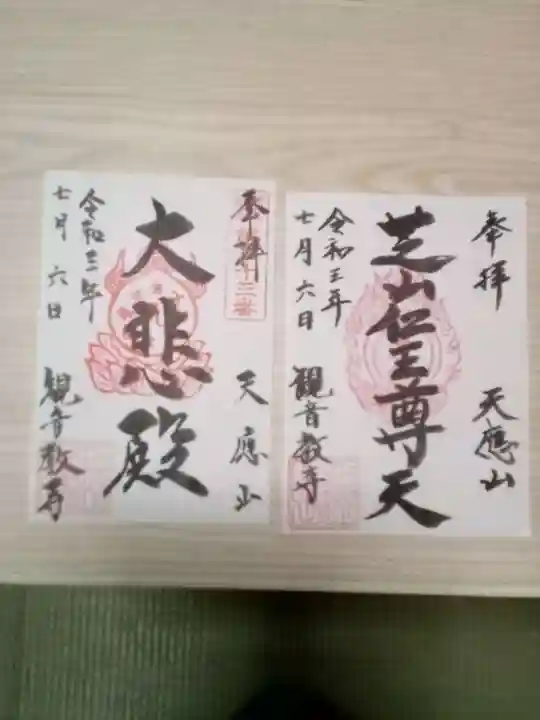 奉拝
天應山
大悲殿
令和三年
七月六日
観音教寺
奉拝
天應山
芝山仁王尊天
令和三年
七月六日
観音教寺